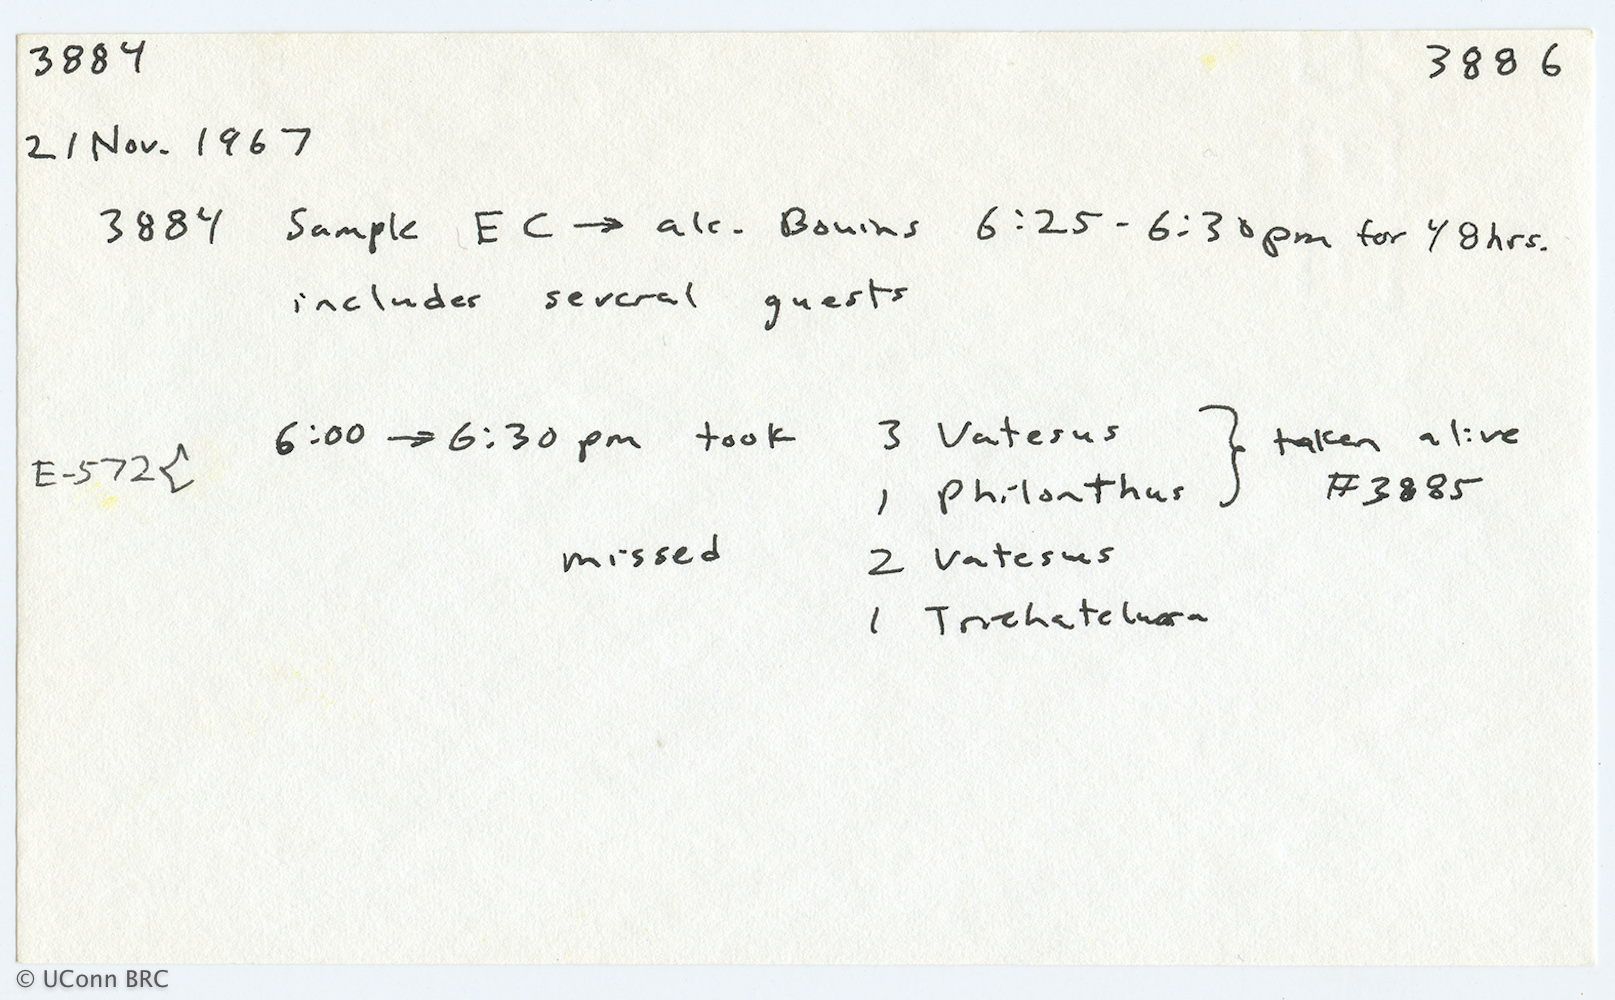 3884 3886
21 Nov. 1967
3884 Sample EC → alc. Bouins 6:25 - 6:30 pm for 48 hrs.
includes several guests
6:00 → 6:30 pm took 3 Vatesus } taken alive
E-572{
1 Philonthus #3885
missed 2 Vatesus
1
© UConn BRC